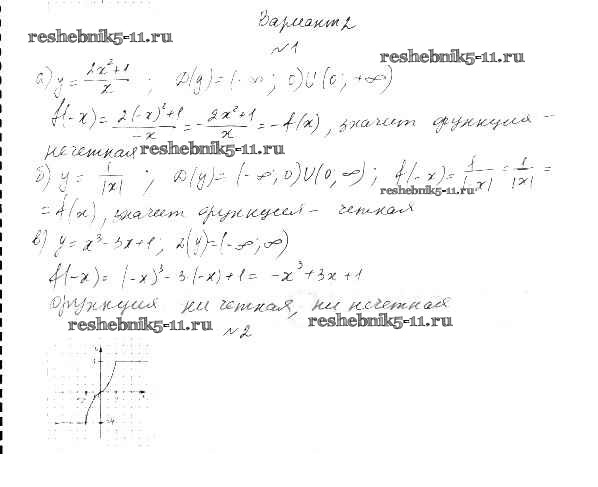 Вариант 2
reshebnik5-11.ru
№1
reshebnik5-11.ru
а) y = (2x²+1)/x ; D(y) = (-∞; 0) U (0; +∞)
f(-x) = (2(-x)²+1)/(-x) = -(2x²+1)/x = -f(x), значит функция -
нечетная
reshebnik5-11.ru
б) y = 1/|x| ; D(y) = (-∞; 0) U (0; ∞) ; f(-x) = 1/|-x| = 1/|x| =
reshebnik5-11.ru
= f(x), значит функция - четная
в) y = x³ - 3x + 1; D(y) = (-∞; ∞)
f(-x) = (-x)³ - 3·(-x) + 1 = -x³ + 3x + 1
функция ни четная, ни нечетная
reshebnik5-11.ru
reshebnik5-11.ru
№2